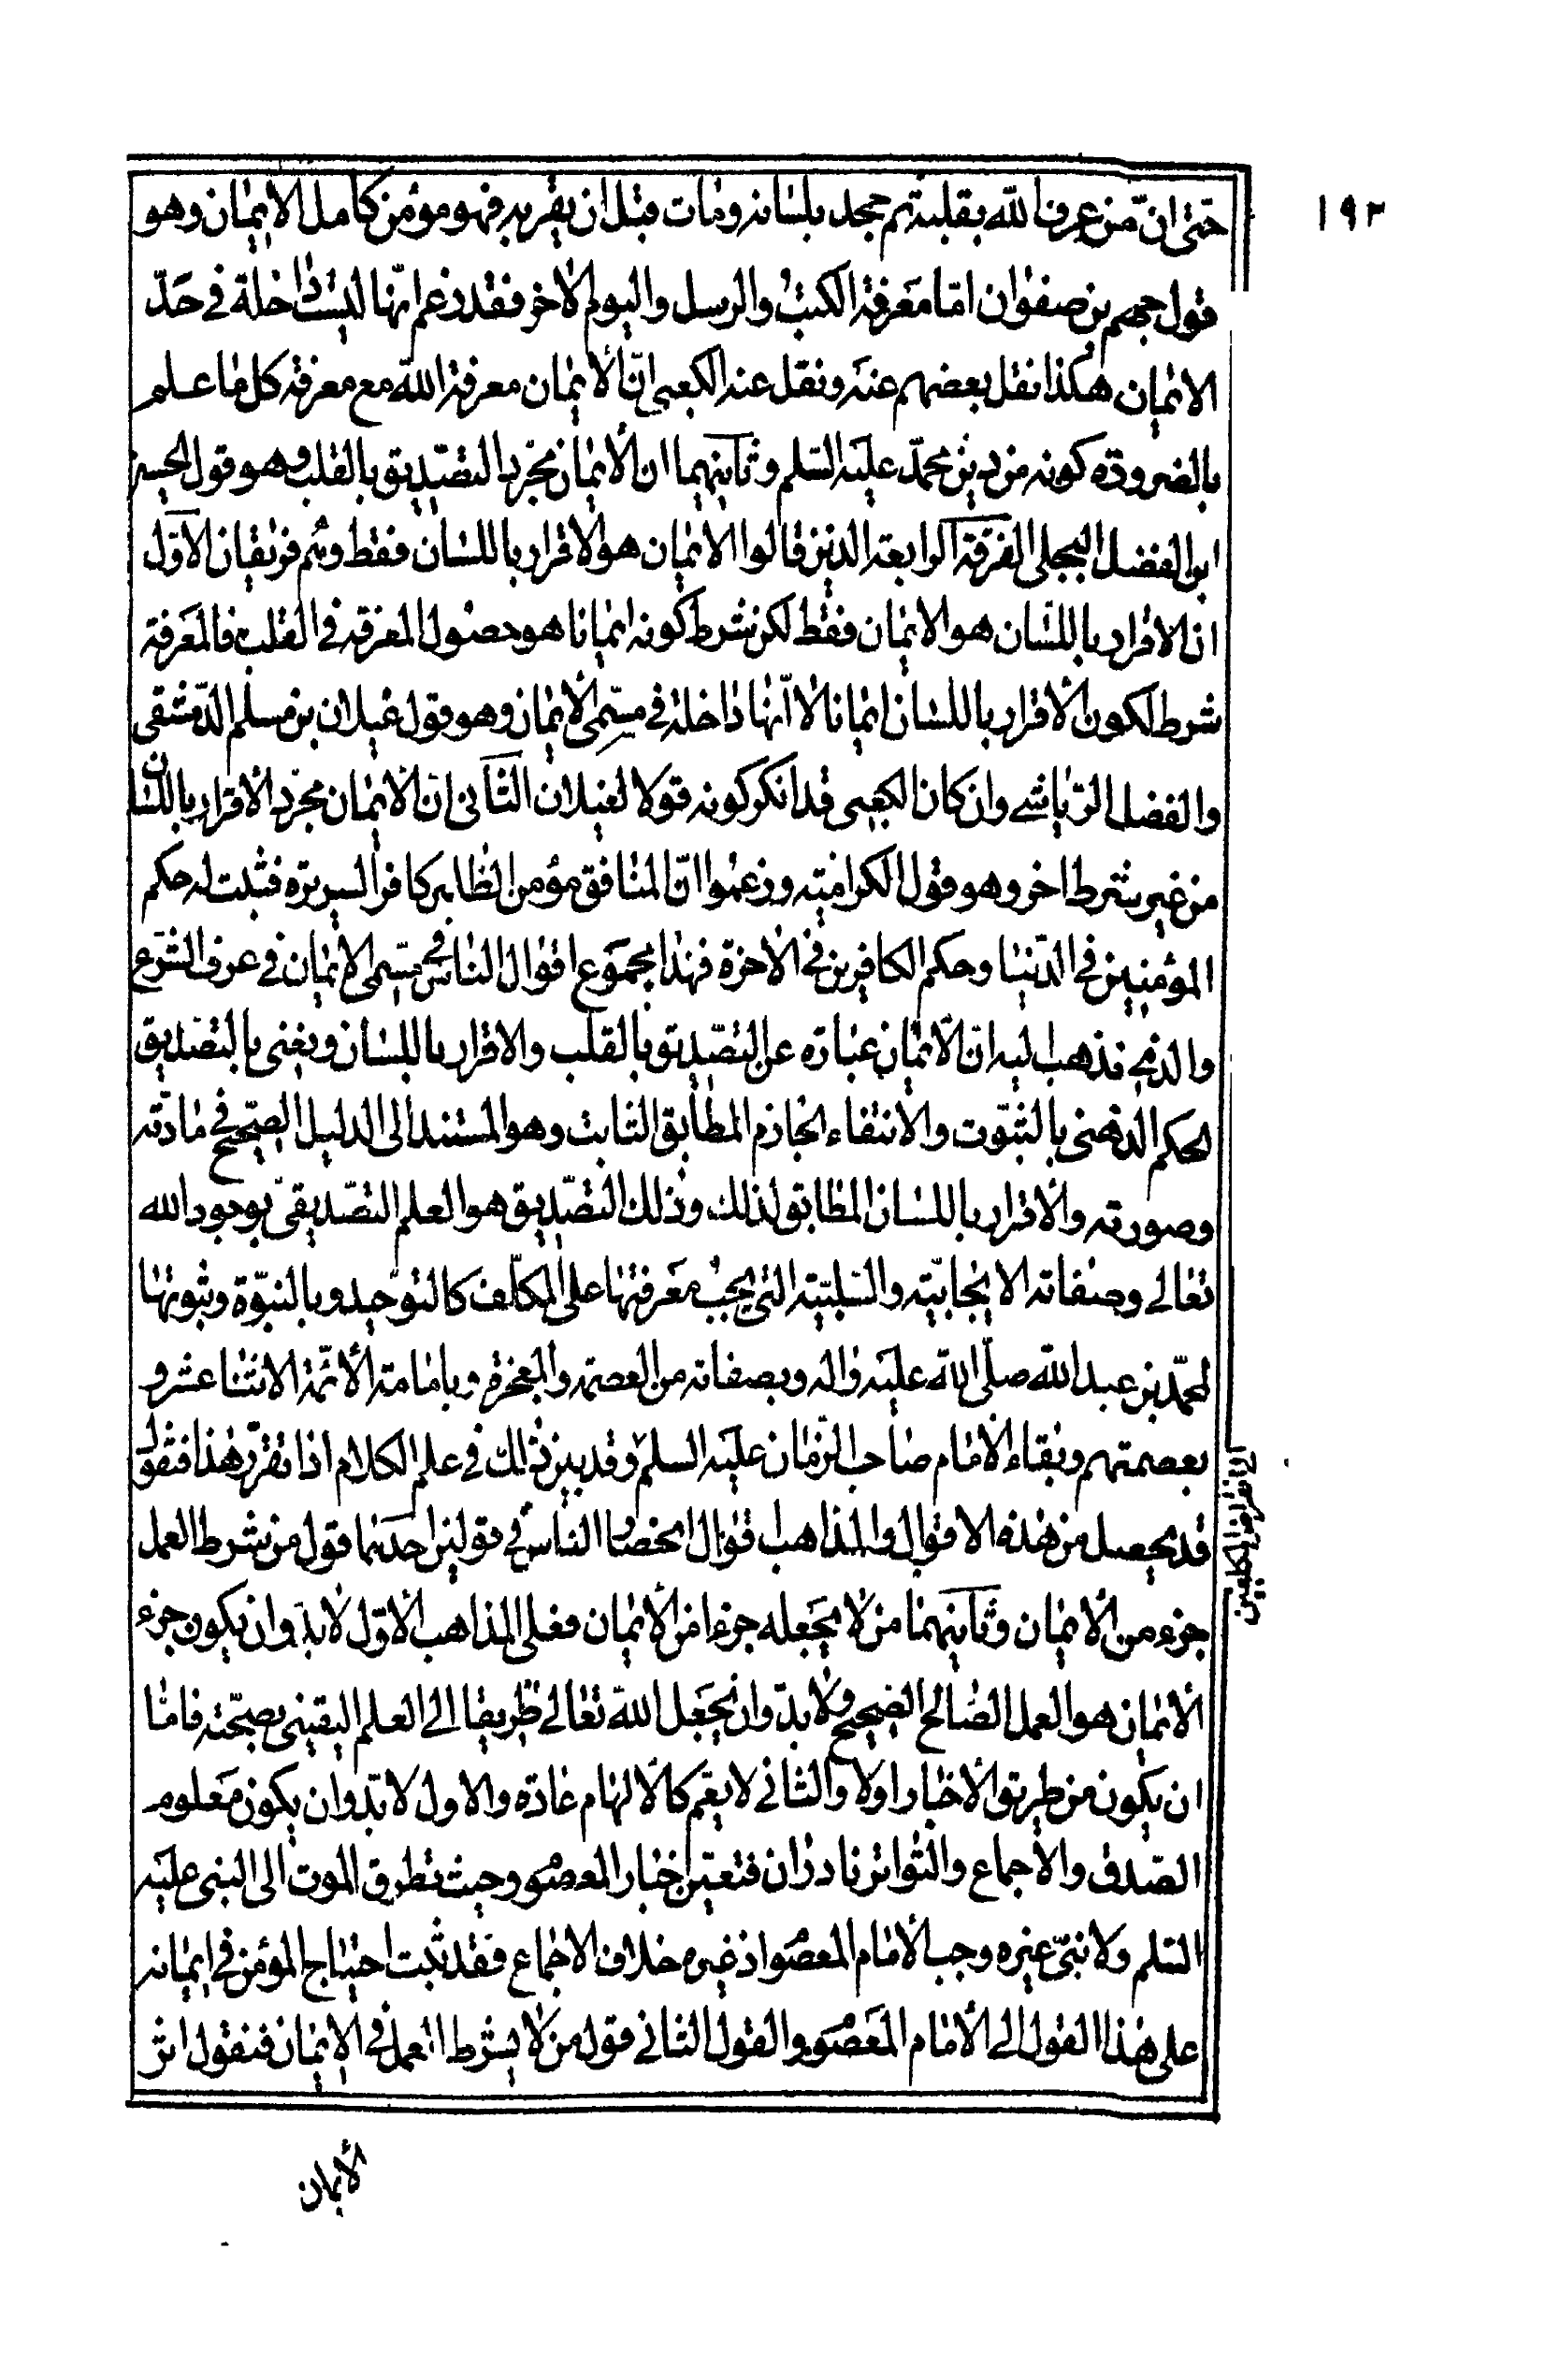 ١٩٢
حتى انّ من عرف الله بقلبه ثم جحد بلسانه ومات قبل ان يقر به فهو مؤمن كامل الايمان وهو
قول جهم بن صفوان امّا معرفة الكتب والرسل واليوم الاخر فقد زعم انّها ليست داخلة في حدّ
الايمان هكذا نقل بعضهم عنه ونقل عنه الكعبى انّ الايمان معرفة الله مع معرفة كل ما علم
بالضرورة كونه من دين محمّد عليه السّلم وثانيهما ان الايمان مجرد التصديق بالقلب وهو قول الحسين
ابن الفضل البجلى الفرقة الرابعة الذين قالوا الايمان هو الاقرار باللسان فقط وهم فريقان الاوّل
ان الاقرار باللسّان هو الايمان فقط لكن شرط كونه ايمانا هو حصول المعرفة في القلب فالمعرفة
شرط لكون الاقرار باللسان ايمانا لا انّها داخلة في مسمّى الايمان وهو قول غيلان بن مسلم الدّمشقى
والفضل الرّياشے وان كان الكعبى قد انكر كونه قولا لغيلان الثانى ان الايمان مجرّد الاقرار باللسان
من غير شرط اخر وهو قول الكراميّة وزعموا انّ المنافق مؤمن الظاهر كافر السريرة فثبت له حكم
المؤمنين في الدّنيا وحكم الكافرين في الاخرة فهذا مجموع اقوال الناس في مسمى الايمان في عرف الشرع
والذى نذهب ليه انّ الايمان عبارة عن التصديق بالقلب والاقرار باللسان ونعنى بالتصديق
الحكم الذهنى بالثبوت والانتفاء الجازم المطابق الثابت وهو المستند الى الدليل الصّحيح في مادّته
وصورته والاقرار باللسان المطابق لذلك وذلك التصديق هو العلم التصديقىّ بوجود الله
تعالى وصفاته الايجابيّة والسّلبيّة التى يجب معرفتها على المكلّف كالتوحيد وبالنبوّة وثبوتها
لمحمّد بن عبد الله صلّى الله عليه واله وبصفاته من العصمة والمعجزة وبامامة الائمّة الاثنا عشر و
بعصمتهم وبقاء الامام صاحب الزّمان عليه السلم وقد بين ذلك في علم الكلام اذا تقرّر هذا فنقول
قد يحصل من هذه الاقوال والمذاهب اقوال انحصار الناس في قولين احدهما قول من شرط العمل
جزء من الايمان وثانيهما من لا يجعله جزءا من الايمان فعلى المذاهب الاوّل لا بدّ وان يكون جزء
الايمان هو العمل الصّالح الصحيح ولا بدّ وان يجعل الله تعالى طريقا الى العلم اليقينى بصحّته فامّا
ان يكون من طريق الاخبار اولا والثانى لا يعم كالالهام عادة والاول لا بدّ وان يكون معلوم
الصّدق والاجماع والتواتر نادران فتعيّن اخبار المعصوم وحيث تطرق الموت الى النبى عليه
السّلم ولا نبىّ غيره وجب الامام المعصوم اذ غيره خلاف الاجماع فقد ثبت احتياج المؤمن في ايمانه
على هذا القول الى الامام المعصوم والقول الثانى قول من لا يشرط العمل في الايمان فنقول اثر
الايمان